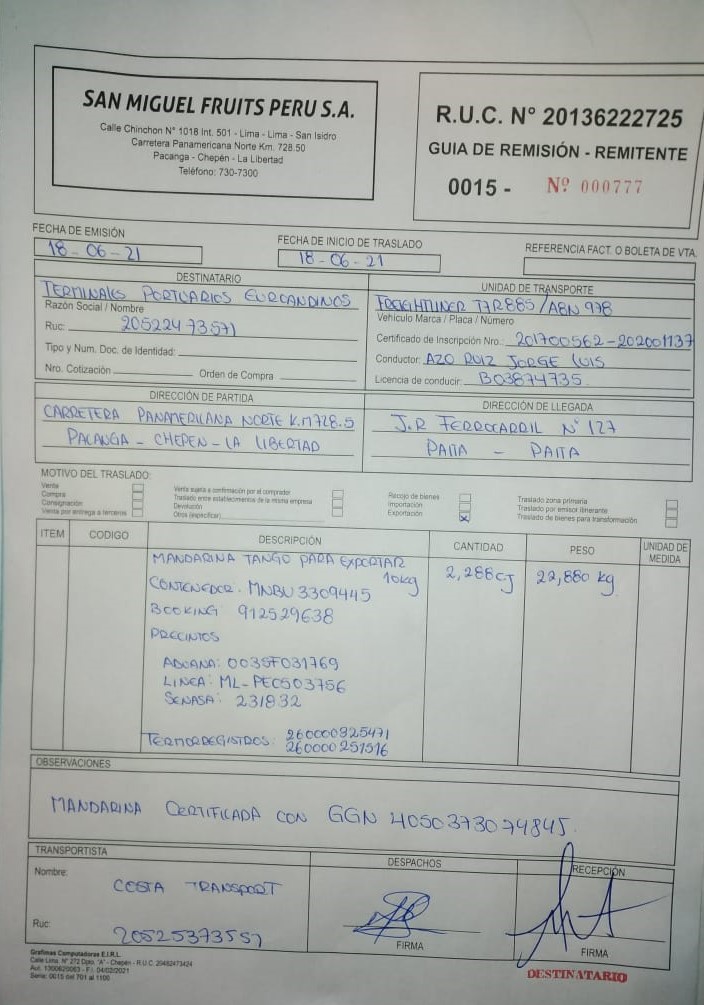 SAN MIGUEL FRUITS PERU S.A.
Calle Chinchon N° 1018 Int. 501 - Lima - Lima - San Isidro
Carretera Panamericana Norte Km. 728.50
Pacanga - Chepén - La Libertad
Teléfono: 730-7300
R.U.C. N° 20136222725
GUIA DE REMISIÓN - REMITENTE
0015 - Nº 000777
FECHA DE EMISIÓN
18-06-21
FECHA DE INICIO DE TRASLADO
18-06-21
REFERENCIA FACT. O BOLETA DE VTA.
DESTINATARIO
TERMINALES PORTUARIOS EUROANDINOS
Razón Social / Nombre
Ruc: 20522473571
Tipo y Num. Doc. de Identidad:
Nro. Cotización Orden de Compra
UNIDAD DE TRANSPORTE
FREIGHTLINER T7R885/ABN 978
Vehículo Marca / Placa / Número
Certificado de Inscripción Nro.: 201700562-202001137
Conductor: AZO RUIZ JORGE LUIS
Licencia de conducir: B03874735
DIRECCIÓN DE PARTIDA
CARRETERA PANAMERICANA NORTE K.M 728.5
PACANGA - CHEPEN - LA LIBERTAD
DIRECCIÓN DE LLEGADA
J.R FERROCARRIL N° 127
PAITA - PAITA
MOTIVO DEL TRASLADO:
Venta
Compra
Consignación
Venta por entrega a terceros
Venta sujeta a confirmación por el comprador
Traslado entre establecimientos de la misma empresa
Devolución
Otros (especificar)
Recojo de bienes
Importación
Exportación
Traslado zona primaria
Traslado por emisor itinerante
Traslado de bienes para transformación
ITEM CODIGO DESCRIPCIÓN CANTIDAD PESO UNIDAD DE MEDIDA
MANDARINA TANGO PARA EXPORTAR
10kg 2,288cj 22,880 kg
CONTENEDOR. MNBU 3309445
BOOKING 912529638
PRECINTOS
ADUANA: 003SF031769
LINEA: ML-PEC503756
SENASA: 231832
TERMORREGISTROS: 260000825471
260000251516
OBSERVACIONES
MANDARINA CERTIFICADA CON GGN 4050373074845.
TRANSPORTISTA
Nombre:
COSTA TRANSPORT
Ruc: 20525373551
DESPACHOS
FIRMA
RECEPCIÓN
FIRMA
Grafimas Computadoras E.I.R.L.
Calle Lima. N° 272 Dpto. "A" - Chepén - R.U.C. 20482473424
Aut. 1300620063 - F.I. 04/02/2021
Serie: 0015 del 701 al 1100
DESTINATARIO